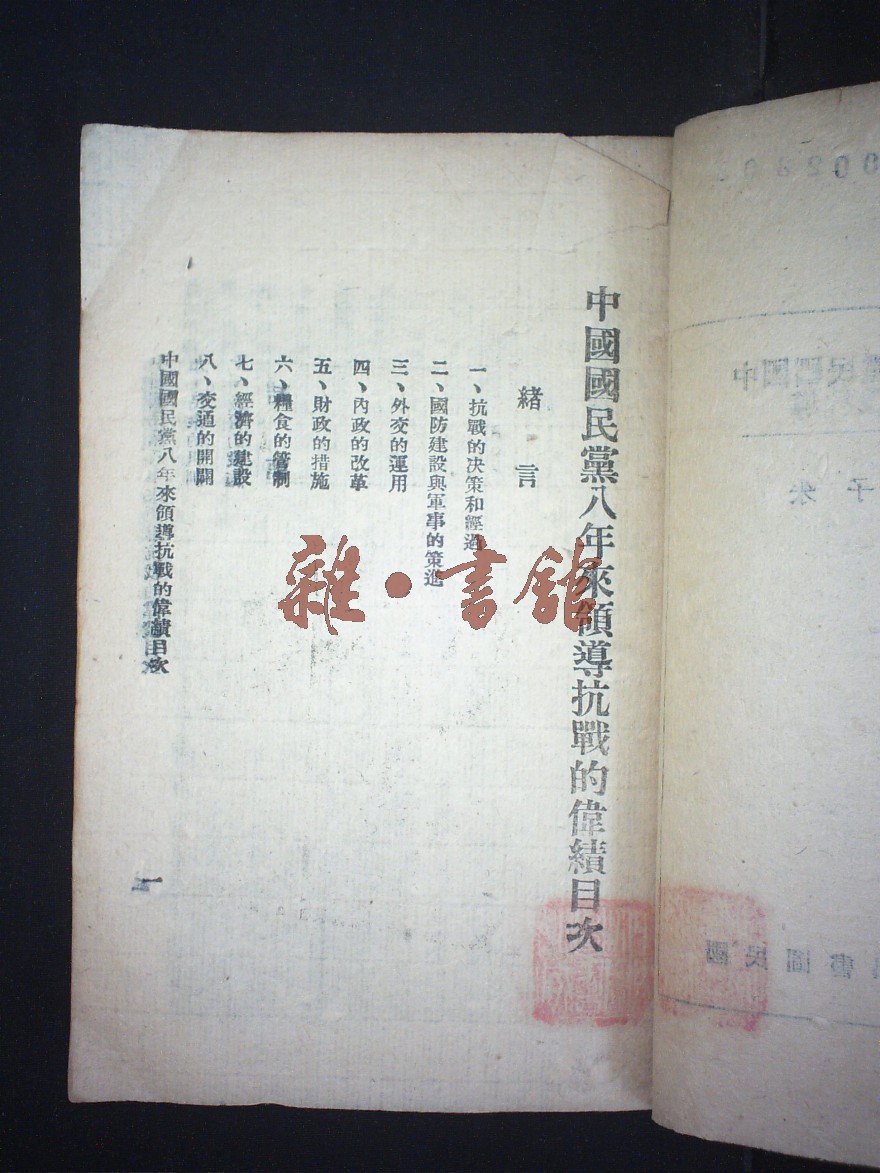 中國國民黨八年來領導抗戰的偉績目次
緒言
一、抗戰的决策和經過
二、國防建設與軍事的策進
三、外交的運用
四、內政的改革
五、財政的措施
六、糧食的管制
七、經濟的建設
八、交通的開闢
中國國民黨八年來領導抗戰的偉績目次
一
雜·書館